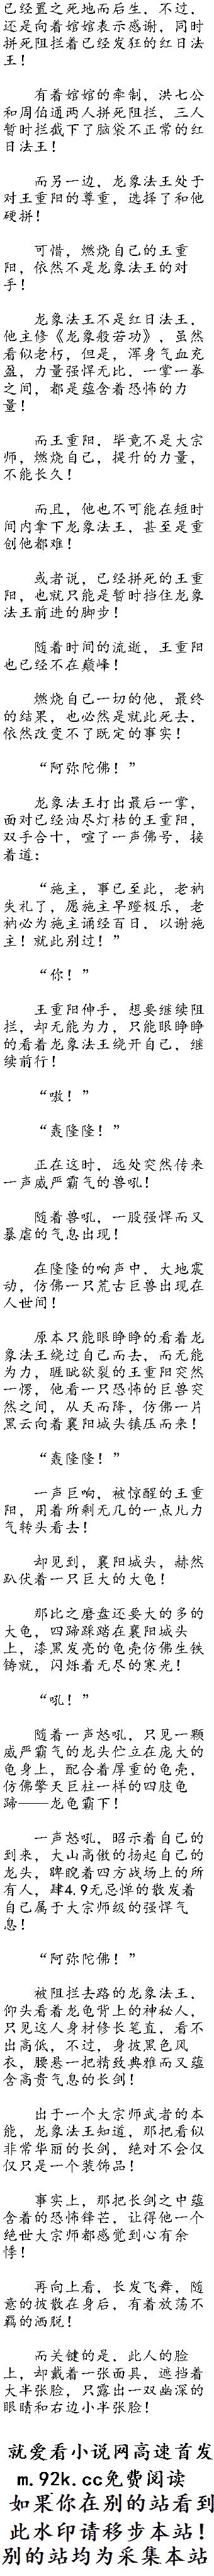 已经置之死地而后生，不过，
还是向着婠婠表示感谢，同时
拼死阻拦着已经发狂的红日法
王！
有着婠婠的牵制，洪七公
和周伯通两人拼死阻拦，三人
暂时拦截下了脑袋不正常的红
日法王！
而另一边，龙象法王处于
对王重阳的尊重，选择了和他
硬拼！
可惜，燃烧自己的王重
阳，依然不是龙象法王的对
手！
龙象法王不是红日法王，
他主修《龙象般若功》，虽然
看似老朽，但是，浑身气血充
盈，力量强悍无比，一掌一拳
之间，都是蕴含着恐怖的力
量！
而王重阳，毕竟不是大宗
师，燃烧自己，提升的力量，
不能长久！
而且，他也不可能在短时
间内拿下龙象法王，甚至是重
创他都难！
或者说，已经拼死的王重
阳，也就只能是暂时挡住龙象
法王前进的脚步！
随着时间的流逝，王重阳
也已经不在巅峰！
燃烧自己一切的他，最终
的结果，也必然是就此死去，
依然改变不了既定的事实！
“阿弥陀佛！”
龙象法王打出最后一掌，
面对已经油尽灯枯的王重阳，
双手合十，喧了一声佛号，接
着道：
“施主，事已至此，老衲
失礼了，愿施主早蹬极乐，老
衲必为施主诵经百日，以谢施
主！就此别过！”
“你！”
王重阳伸手，想要继续阻
拦，却无能为力，只能眼睁睁
的看着龙象法王绕开自己，继
续前行！
“嗷！”
“轰隆隆！”
正在这时，远处突然传来
一声威严霸气的兽吼！
随着兽吼，一股强悍而又
暴虐的气息出现！
在隆隆的响声中，大地震
动，仿佛一只荒古巨兽出现在
人世间！
原本只能眼睁睁的看着龙
象法王绕过自己而去，而无能
为力，睚眦欲裂的王重阳突然
一愣，他看一只恐怖的巨兽突
然之间，从天而降，仿佛一片
黑云向着襄阳城头镇压而来！
“轰隆隆！”
一声巨响，被惊醒的王重
阳，用着所剩无几的一点儿力
气转头看去！
却见到，襄阳城头，赫然
趴伏着一只巨大的大龟！
那比之磨盘还要大的多的
大龟，四蹄踩踏在襄阳城头
上，漆黑发亮的龟壳仿佛生铁
铸就，闪烁着无尽的寒光！
“吼！”
随着一声怒吼，只见一颗
威严霸气的龙头伫立在庞大的
龟身上，配合着厚重的龟壳，
仿佛擎天巨柱一样的四肢龟
蹄——龙龟霸下！
一声怒吼，昭示着自己的
到来，大山高傲的扬起自己的
龙头，睥睨着四方战场上的所
有人，肆4.9无忌惮的散发着
自己属于大宗师级的强悍气
息！
“阿弥陀佛！”
被阻拦去路的龙象法王，
仰头看着龙龟背上的神秘人，
只见这人身材修长笔直，看不
出高低，不过，身披黑色风
衣，腰悬一把精致典雅而又蕴
含高贵气息的长剑！
出于一个大宗师武者的本
能，龙象法王知道，那把看似
非常华丽的长剑，绝对不会仅
仅只是一个装饰品！
事实上，那把长剑之中蕴
含着的恐怖锋芒，让得他一个
绝世大宗师都感觉到心有余
悸！
再向上看，长发飞舞，随
意的披散在身后，有着放荡不
羁的洒脱！
而关键的是，此人的脸
上，却戴着一张面具，遮挡着
大半张脸，只露出一双幽深的
眼睛和右边小半张脸！
就爱看小说网高速首发
m.92k.cc免费阅读
如果你在别的站看到
此水印请移步本站！
别的站均为采集本站